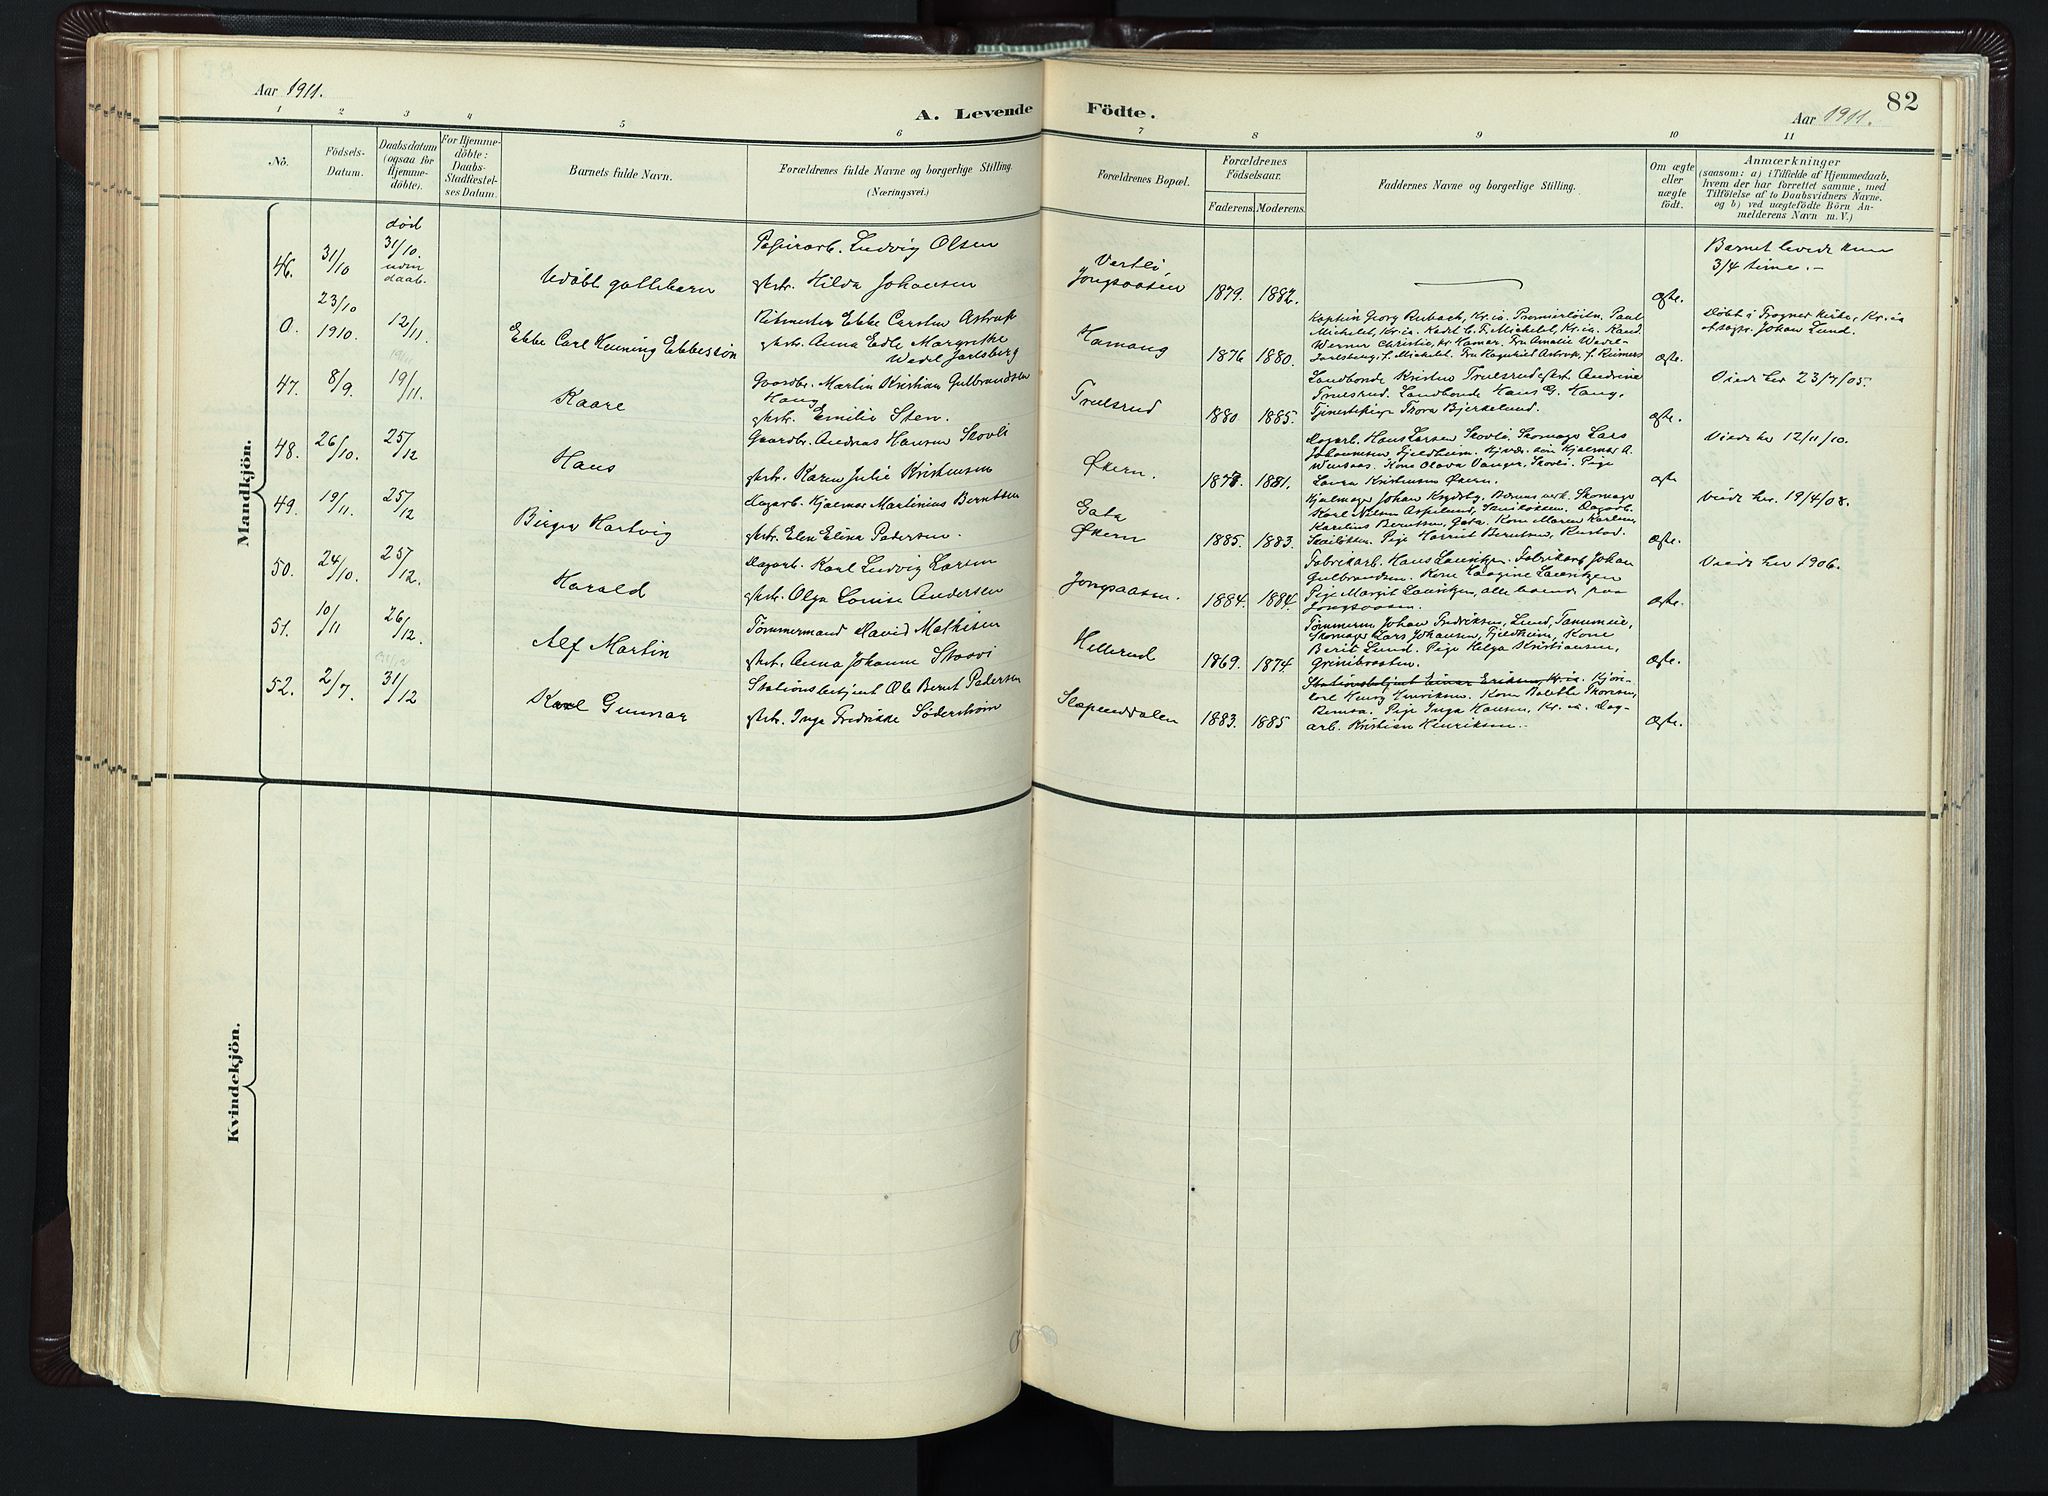 Aar 1911.
A. Levende
Födte.
Aar 1911.
82
1 2 3 4 5 6 7 8 9 10 11
No.
Födsels-
Datum.
Daabsdatum
(ogsaa for
Hjemme-
döbte).
For Hjemme-
döbte:
Daabs-
Stadfæstel-
ses Datum.
Barnets fulde Navn.
Forældrenes fulde Navne og borgerlige Stilling.
(Næringsvei.)
Forældrenes Bopæl.
Forældrenes
Födselsaar.
Faderens. Moderens.
Faddernes Navne og borgerlige Stilling.
Om ægte
eller
uægte
födt.
Anmærkninger
(saasom: a) i Tilfælde af Hjemmedaab,
hvem der har forrettet samme, med
Tilföielse af to Daabsvidners Navne,
og b) ved uægtefödte Börn An-
melderens Navn m. V.)
Mandkjön.
46.
31/10
død
31/10.
uden
daab.
Udøbt guttebarn
Papirarb. Ludvig Olsen
Hstr. Hilda Johansen
Jongsaasen
1879. 1882.
ægte.
Barnet levede kun
3/4 time. -
0.
23/10
1910.
12/11.
Ebbe Carl Henning Ebbessøn
Ritmester Ebbe Carsten Astrup
Hstr. Anna Edle Margrethe
Wedel Jarlsberg
Hamang
1876 1880.
Michelet, Kr.ia. Kadet C. F. Michelet, Kr.ia.
Werner Christie, pr Hamar. Fru Amalie Wedel-
Jarlsberg, f. Michelet. Fru Ragnhild Astrup, f. Reimers
ægte.
Døbt i Frogner kirke, Kr.ia
Johan Lund.
47.
8/9.
19/11.
19/11.
Kaare
Gaardbr. Martin Kristian Gulbrandsen
Haug
Hstr. Emilie Sten.
Trulsrud
1880 1885.
Landbonde Kristen Trulsrud Hstr. Andrine
Trulsrud. Landbonde Hans G. Haug,
Tjenestepige Thora Bjerkelund.
ægte.
Viede her 23/7/05.
48.
26/10.
25/12
Hans
Gaardbr. Andreas Hansen Skovli
Hstr. Karen Julie Kristensen
Økern.
1878. 1881.
Dagarb. Hans Larsen Skovli. Skomager Lars
Johannesen Fjeldheim. Hjalmar A.
Kone Olava Skovli. Pige
Laura Kristensen Økern.
ægte
Viede her 12/11/10.
49.
19/11.
25/12
Birger Hartvig
Dagarb. Hjalmar Martinius Berntsen
Hstr. Elen Elina Pedersen.
Gata
Økern
1885. 1883.
Johan Bærums verk. Skomager
Karl Nilsen Dagarb.
Karelius Berntsen, Gata. Kone Maren Karlsen,
Pige Harriet Berntsen, Rustad.
ægte.
Viede her. 19/4/08.
50.
24/10.
25/12.
Harald
Dagarb. Karl Ludvig Larsen
Hstr. Olga Louise Andersen
Jongsaasen.
1884. 1884.
Fabrikarb. Hans Lauritzen. Fabrikarb Johan
Gulbrandsen. Kone Haagine Lauritzen
Pige Margit Lauritzen, alle boende paa
Jongsaasen.
ægte.
Viede her 1906.
51.
10/11
26/12.
Alf Martin
Tømmermand David Mathisen
Hstr. Anna Johanne Skaavi
Hellerud
1869. 1874.
Tømmerm. Johan Fredriksen, Lund, Tanumeie,
Skomager Lars Johansen, Fjeldheim, Kone
Berit Lund. Pige Helga Kristiansen,
Grinibraaten.
ægte.
52.
2/7.
31/12
31/12
Karl Gunnar
Stationsbetjent Ole Bernt Pedersen
Hstr. Inga Fredrikke Söderström
Slæpenddalen
1883. 1885
Stationsbetjent Einar Eriksen, Kr.ia. Kjøre-
karl Henry Henriksen. Kone Bolette Thoresen,
Pige Inga Hansen, Kr.ia. Dag-
arb. Kristian Henriksen.
ægte.
Kvindekjön.